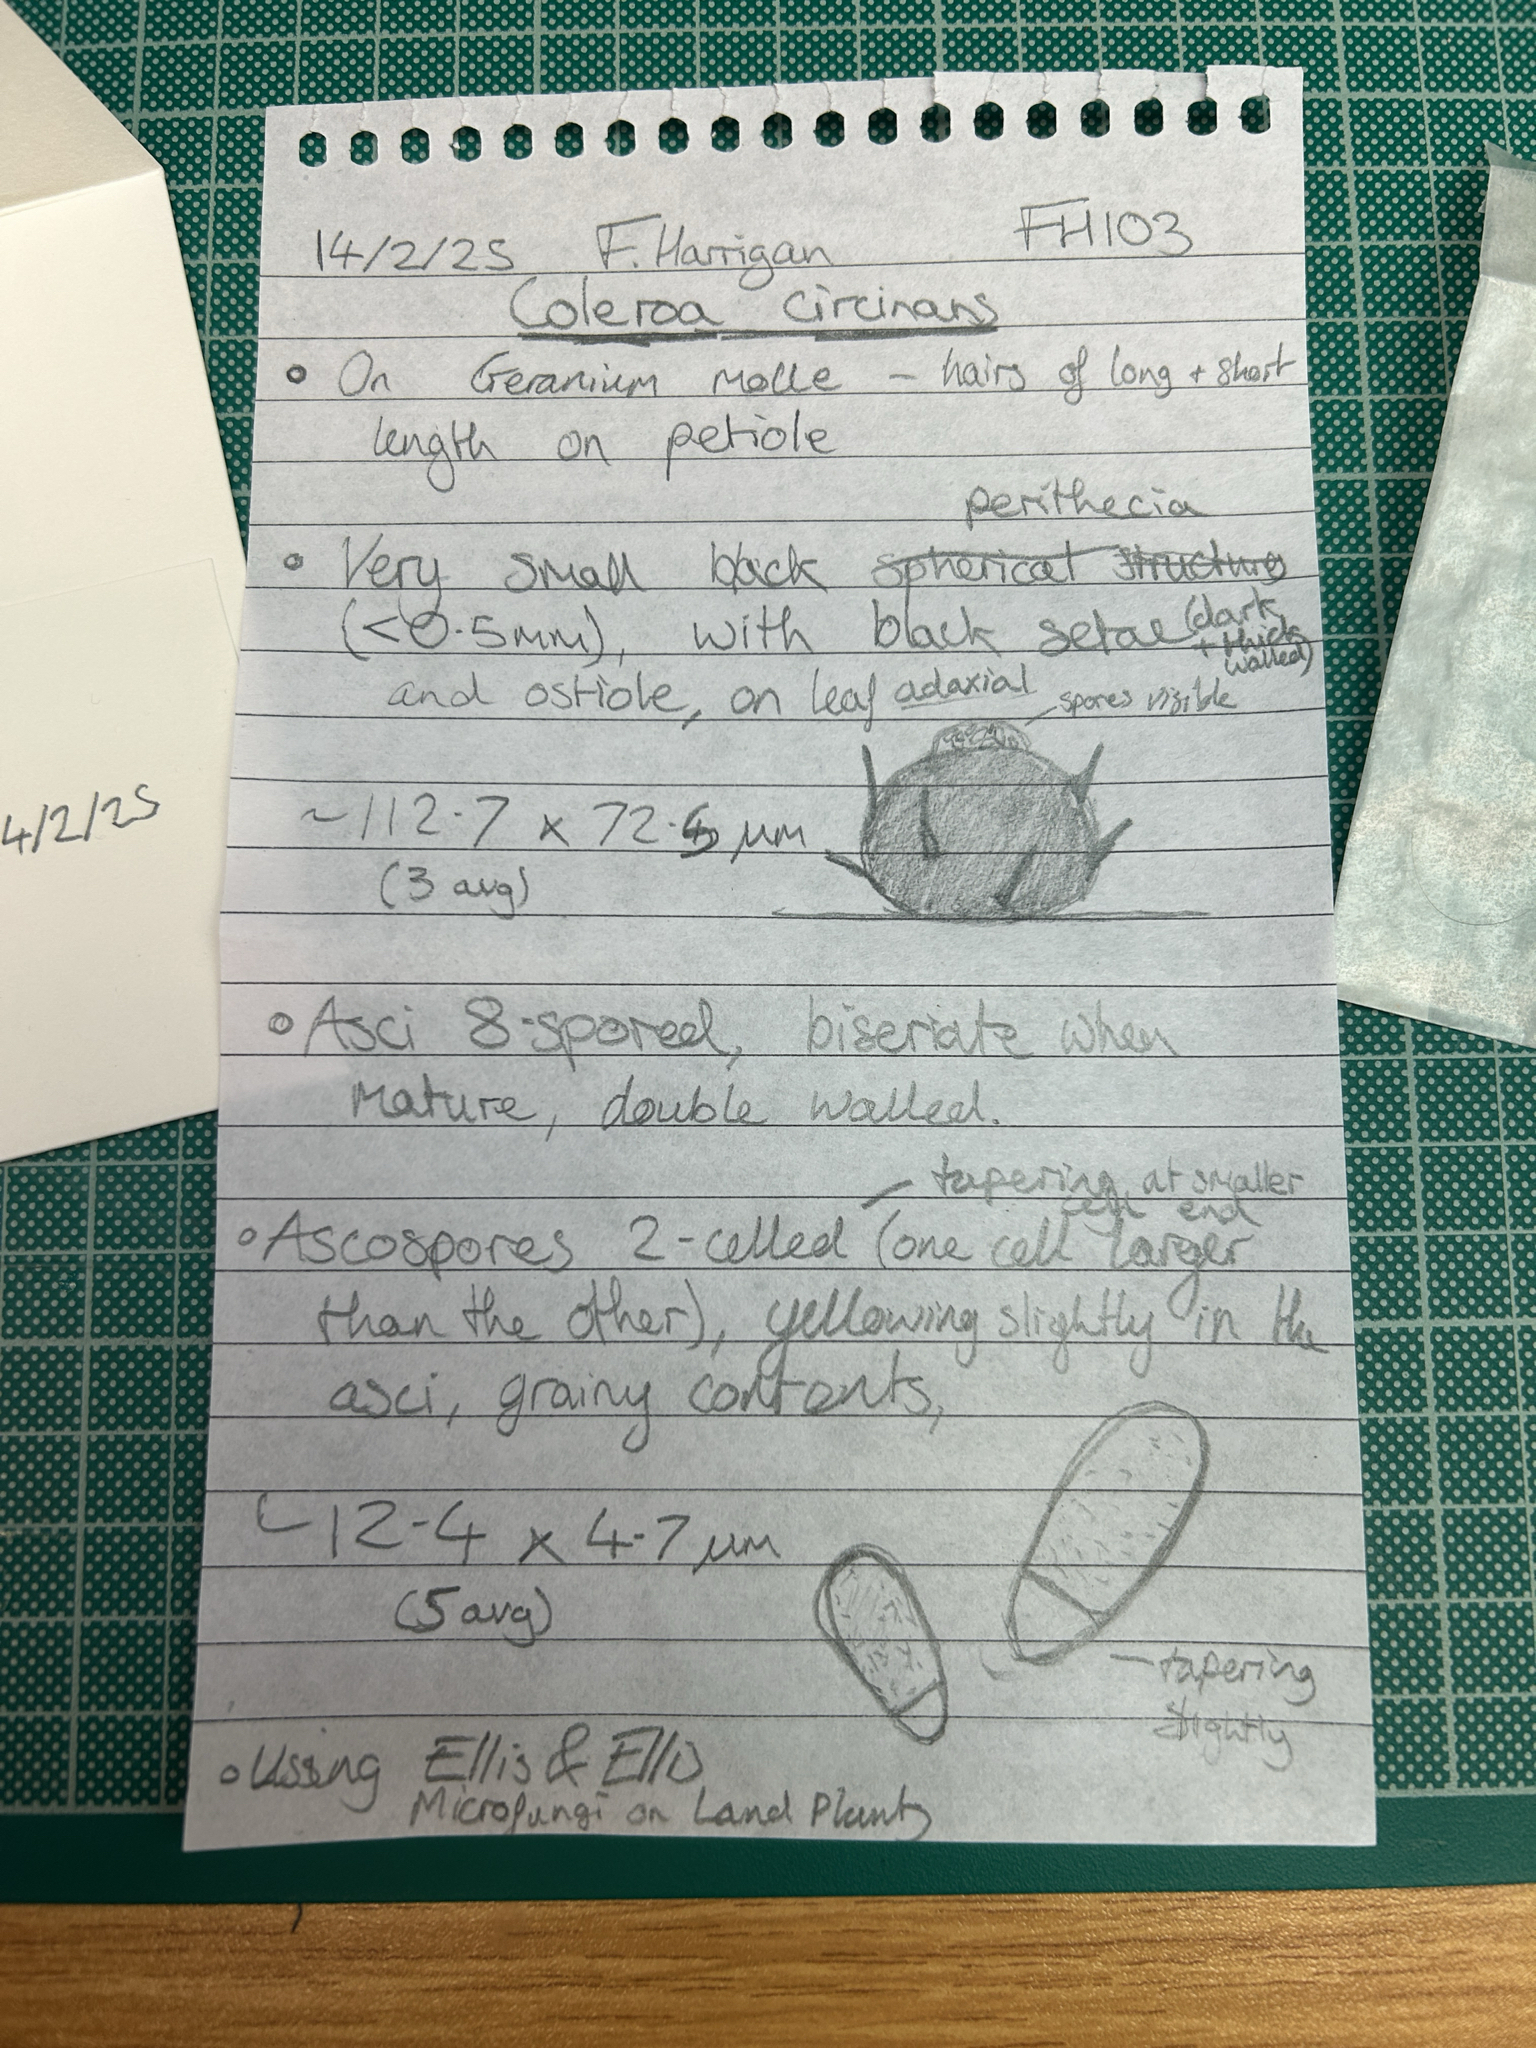 14/2/25 F. Harrigan FH103
Coleroa circinans
• On Geranium molle - hairs of long + short
length on petiole
perithecia
• Very small black spherical structure
(<0.5mm), with black setae (dark
+ thick
walled)
and ostiole, on leaf adaxial
spores visible
~112.7 x 72.5 µm
(3 avg)
4/2/25
• Asci 8-spored, biseriate when
mature, double walled.
- tapering at smaller
cell end
• Ascospores 2-celled (one cell larger
than the other), yellowing slightly in the
asci, grainy contents,
~12.4 x 4.7 µm
(5 avg)
- tapering
slightly
• Using Ellis & Ellis
Microfungi on Land Plants